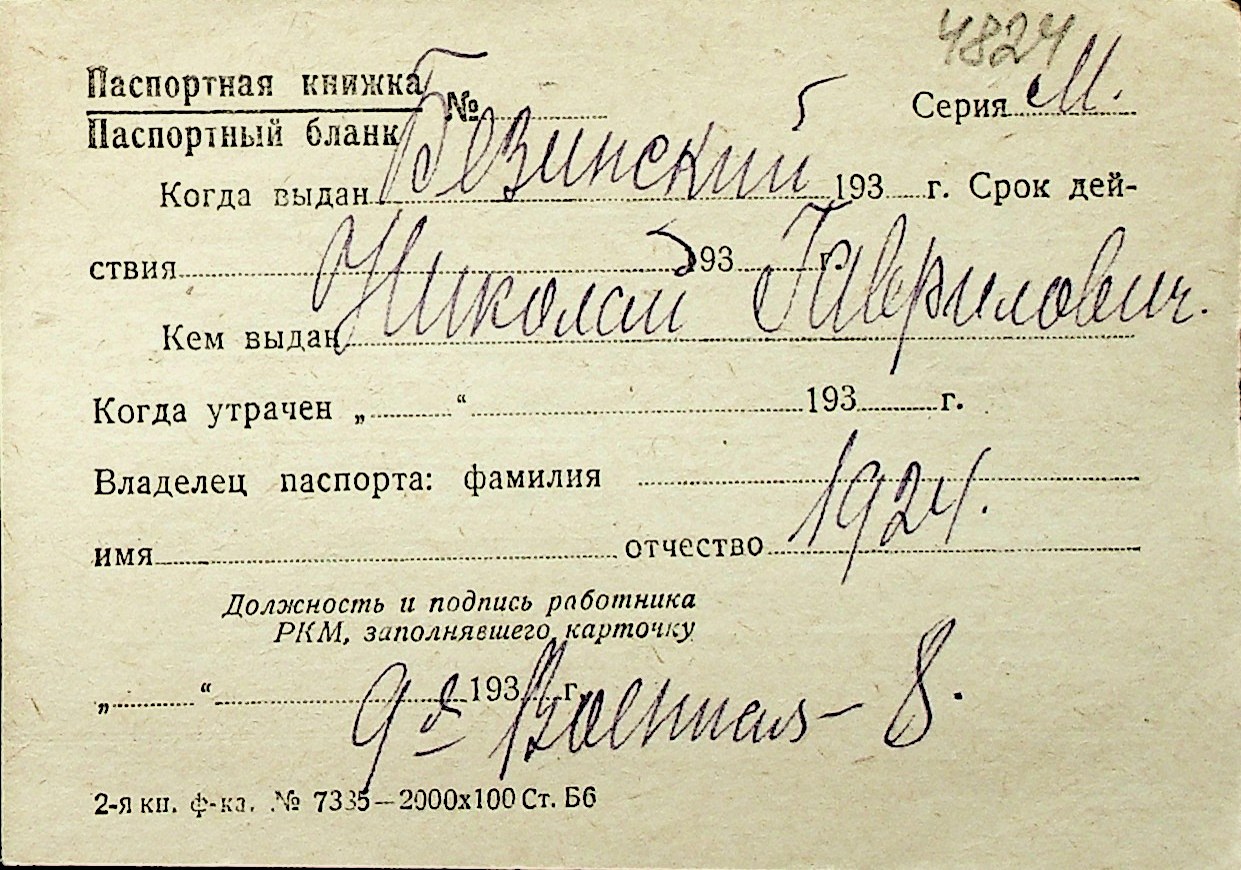 4824
Паспортная книжка № Серия М.
Паспортный бланк
Безинский
Когда выдан 193 г. Срок дей-
ствия 193 г.
Николай Гаврилович.
Кем выдан
Когда утрачен „ “ 193 г.
Владелец паспорта: фамилия
1924.
имя отчество
Должность и подпись работника
РКМ, заполнявшего карточку
„ “ 193 г.
9я Военная – 8.
2-я кн. ф-ка. № 7335—2000х100 Ст. Б6